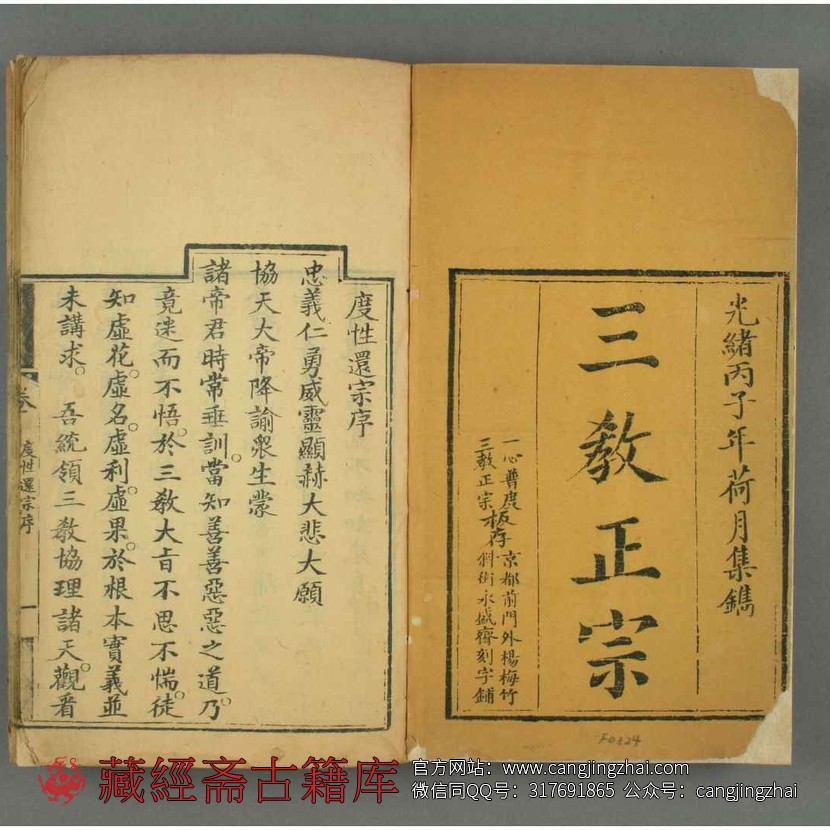 光緒丙子年荷月集鐫
三教正宗
一心普度
三教正宗
板存
京都前門外楊梅竹
斜街永盛齋刻字鋪
F0324
度性還宗序
忠義仁勇威靈顯赫大悲大願
協天大帝降諭衆生蒙
諸帝君時常垂訓。當知善善惡惡之道。乃
竟迷而不悟。於三教大旨不思不惴。徒
知虛花。虛名。虛利。虛果。於根本實義並
未講求。吾統領三教協理諸天。觀看
卷一
度性還宗序
一
藏經斋古籍库
官方网站：www.cangjingzhai.com
微信同QQ号：317691865 公众号：cangjingzhai